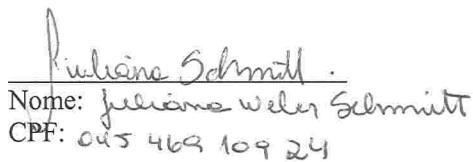 Juliana Schmitt.
Nome: Juliana Weber Schmitt
CPF: 045 469 109 24